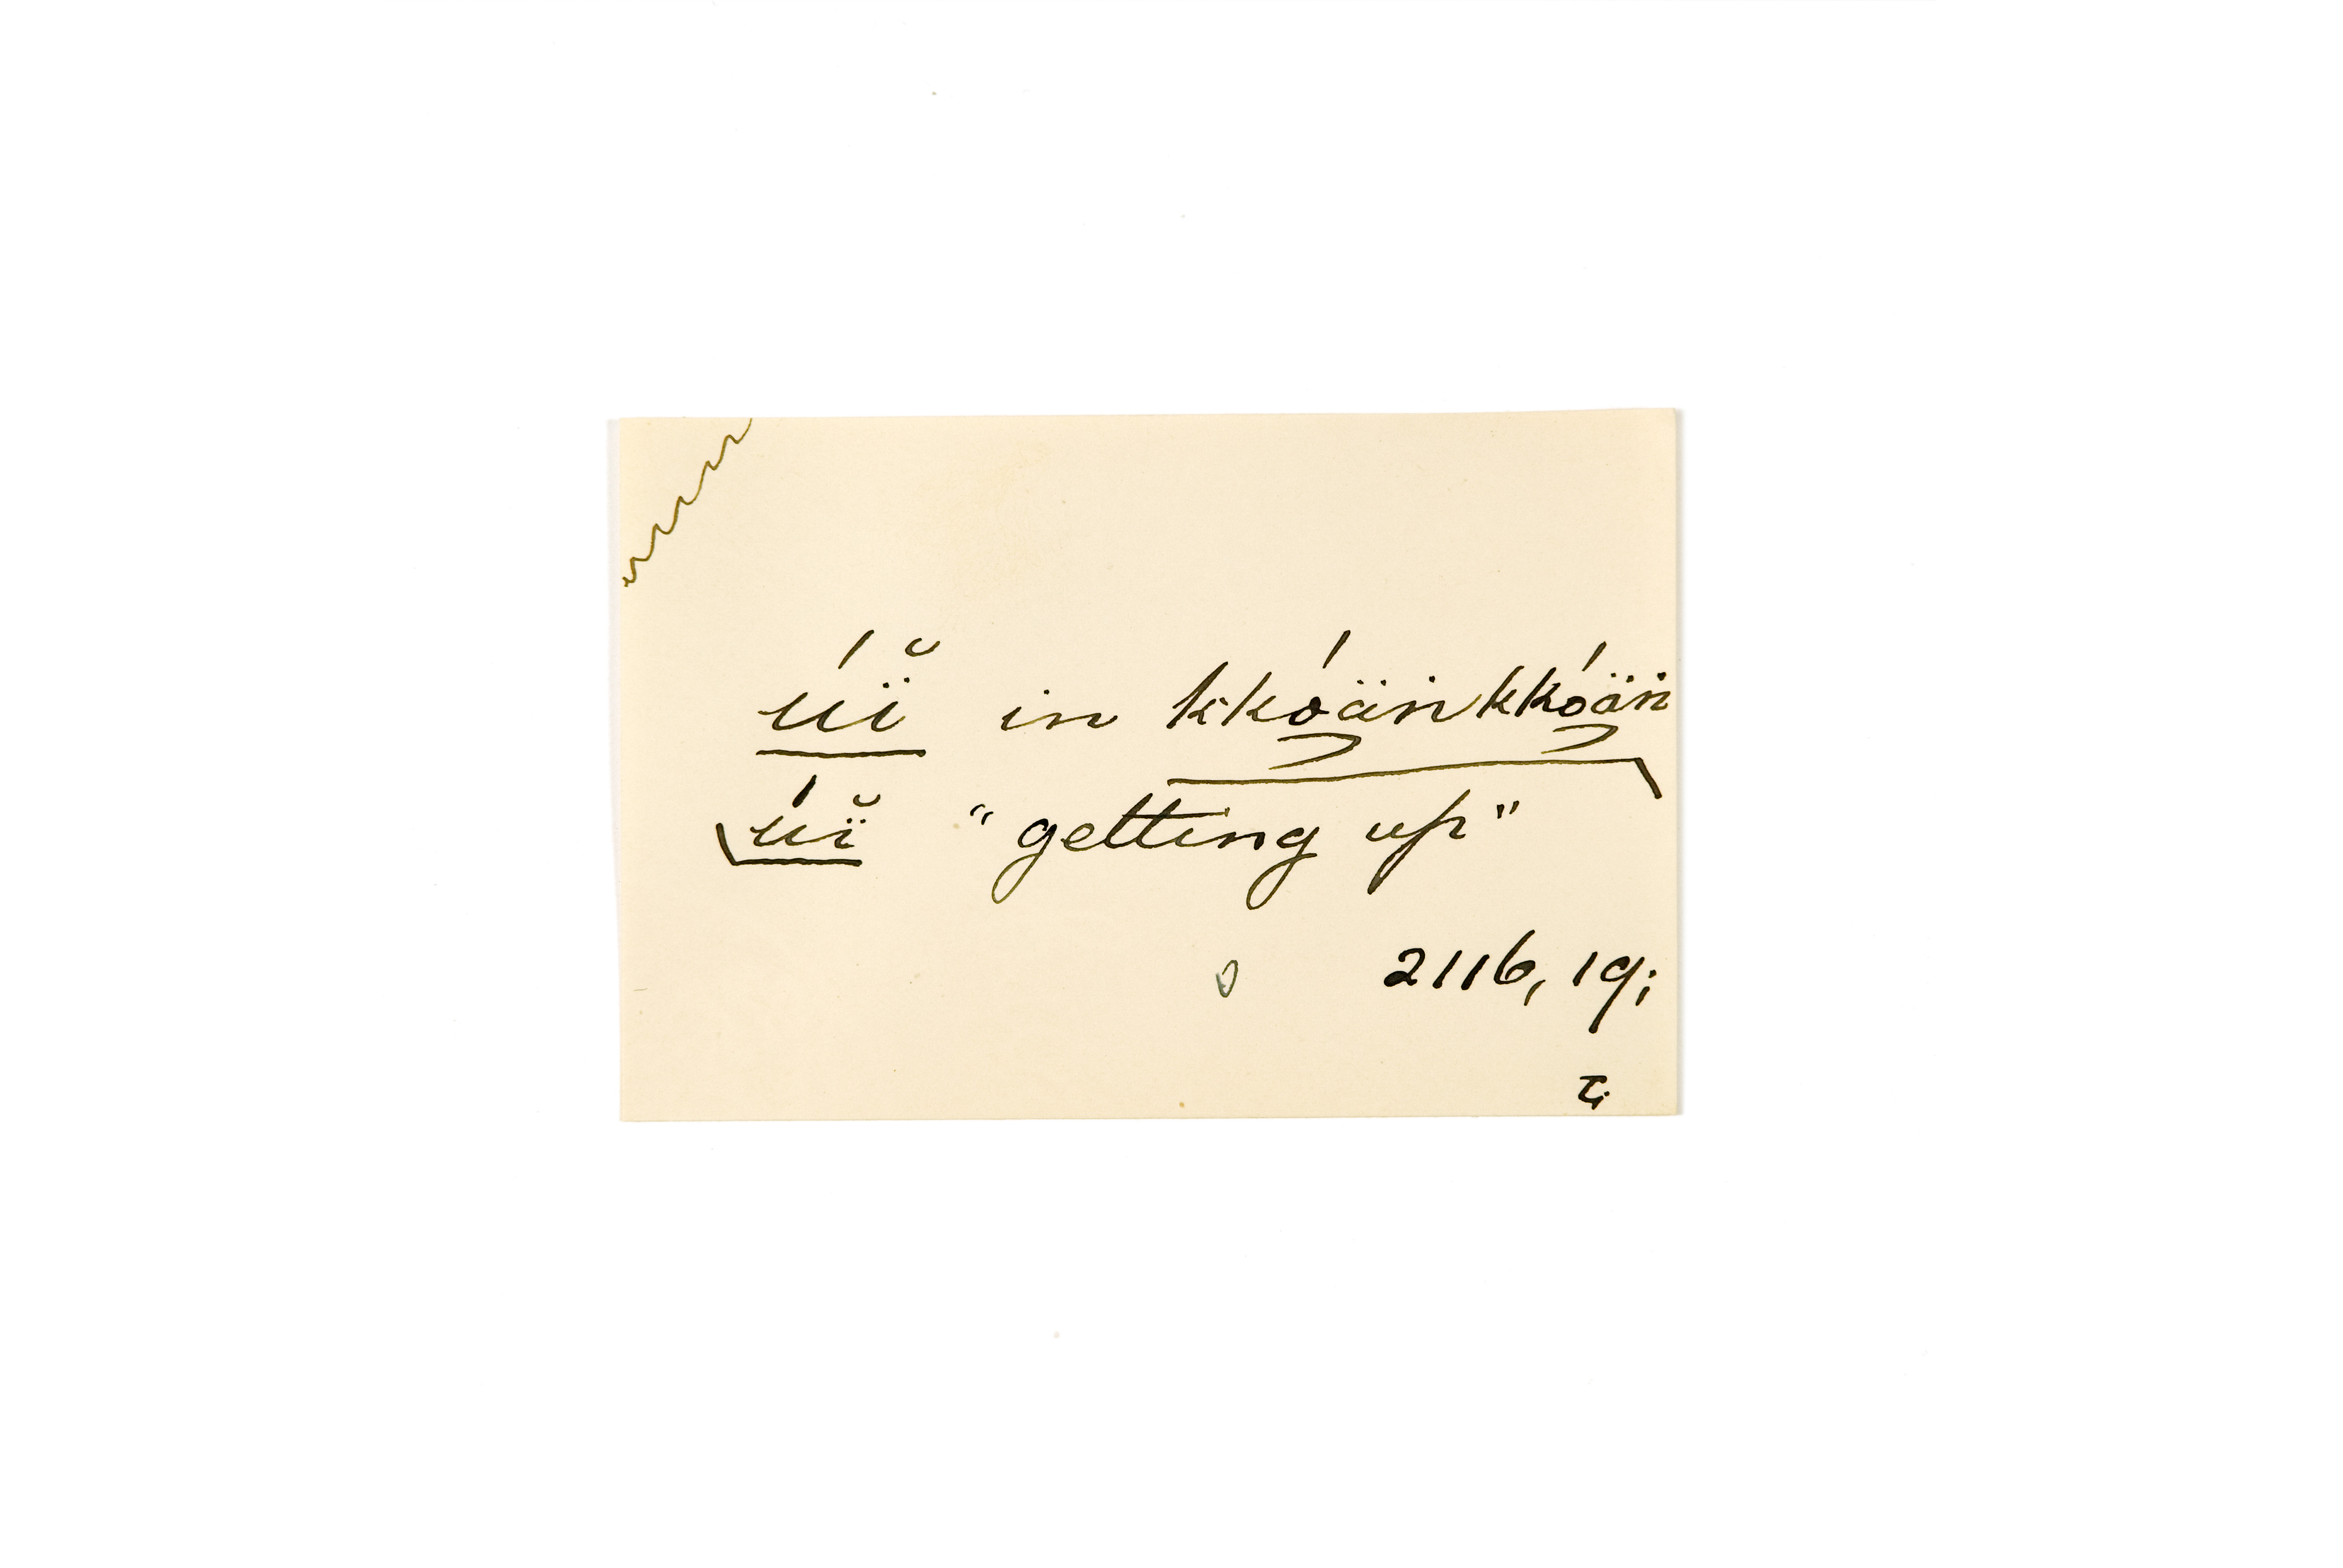 úï̆ in kkóäṅkkóäṅ
úï̆ "getting up"
2116, 19;